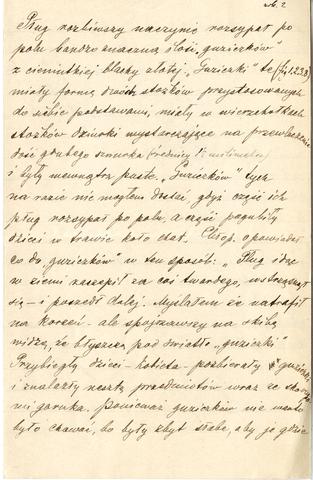 № 2
Pług rozbiwszy naczynie rozsypał po
polu bardzo znaczną ilość „guziczków"
z cieniutkiej blachy złotej. „Guziczki" te (fig 1.2.3.)
miały formę dwóch stożków przystosowanych
do siebie podstawami, miały w wierzchołkach
stożków dziurki wystarczające na przewleczenie
dość grubego sznurka (średnicy
i były wewnątrz puste. „Guziczków" tych
na razie nie mogłem dostać gdyż część ich
pług rozsypał po polu, a część pogubiły
dzieci w trawie koło chat. Chłop. opowiadał
co do „guziczków" w ten sposób: „Pług idąc
w ziemi zaczepił za coś twardego, wstrząsnął
się – i poszedł dalej. Myślałem że natrafił
na korzeń – ale spojrzawszy na skibę
widzę, że błyszczą pod światło „guziczki"
Przybiegły dzieci – kobieta – pozbierały guziczki
i znalazły resztę przedmiotów wraz ze skorupami
garnka. Ponieważ guziczków nie warto
było chować, bo były zbyt słabe, aby je gdzie